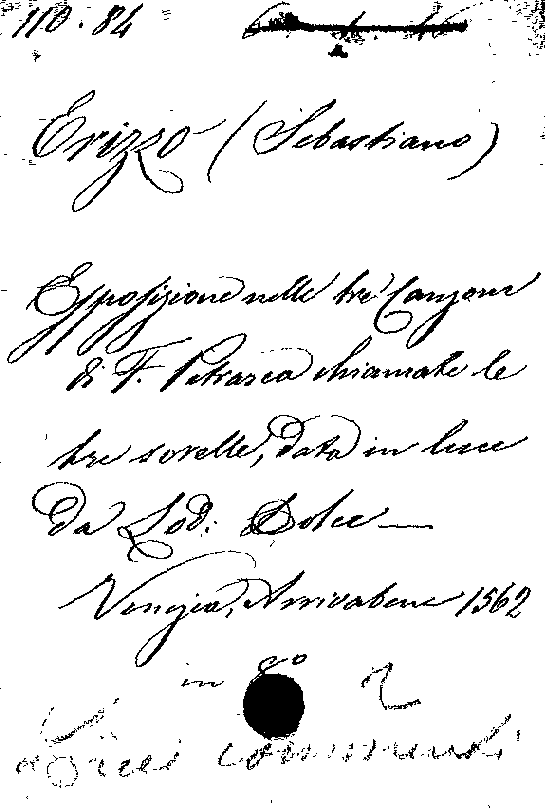 110.84
Erizzo (Sebastiano)
Espposizione nelle tre Canzoni
di F. Petrarca chiamate le
tre sorelle, data in luce
da Lod: Dolce —
Venezia, Arrivabene 1562
in 8º 2